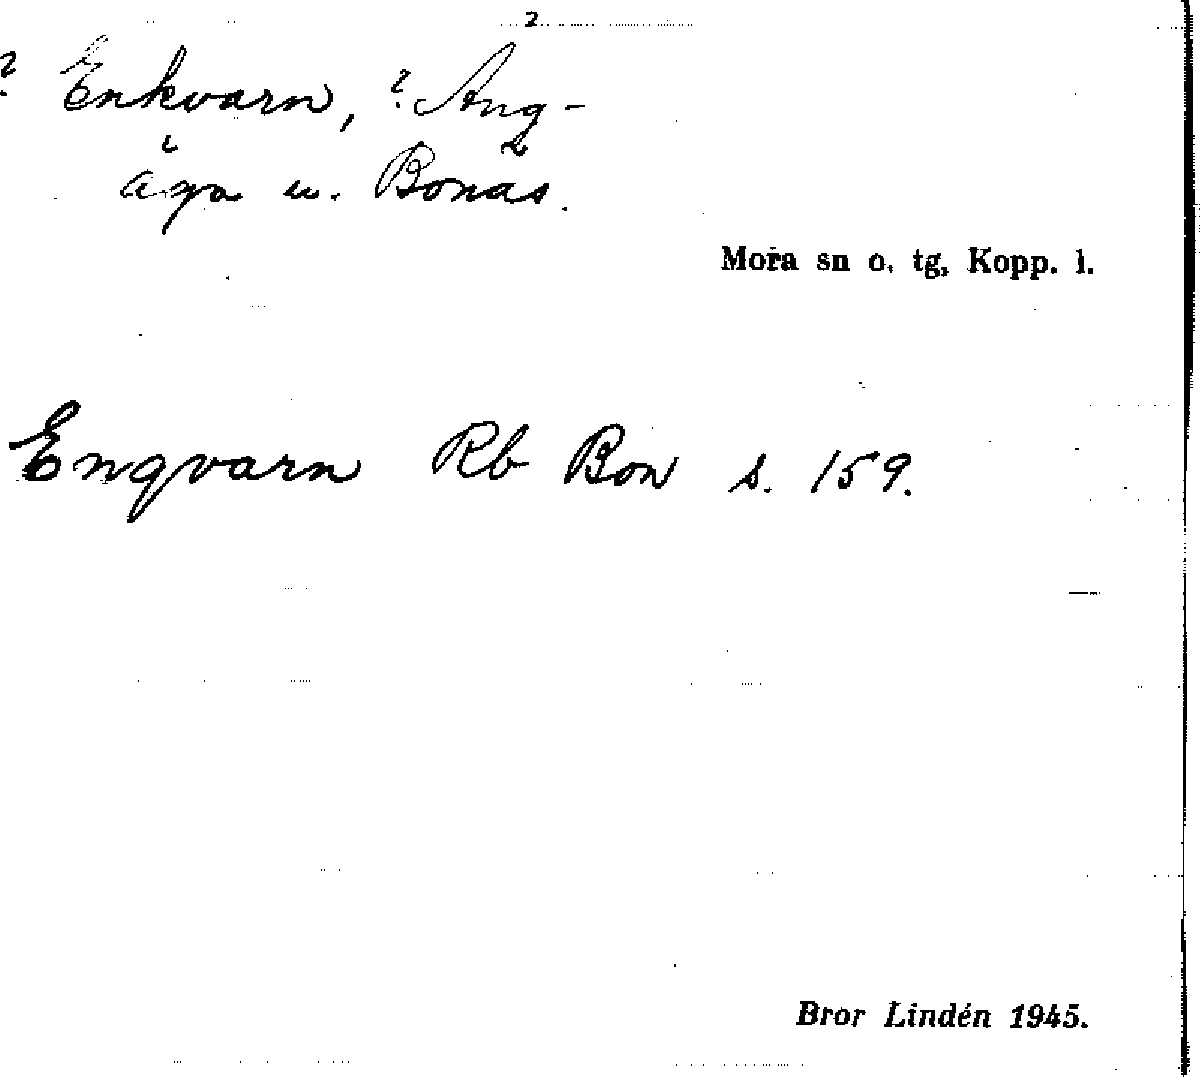 2
? Enkvarn, ? Äng-
åga u. Bonäs.
Mora sn o. tg, Kopp. l.
Engvarn Rb Bon s. 159.
Bror Lindén 1945.